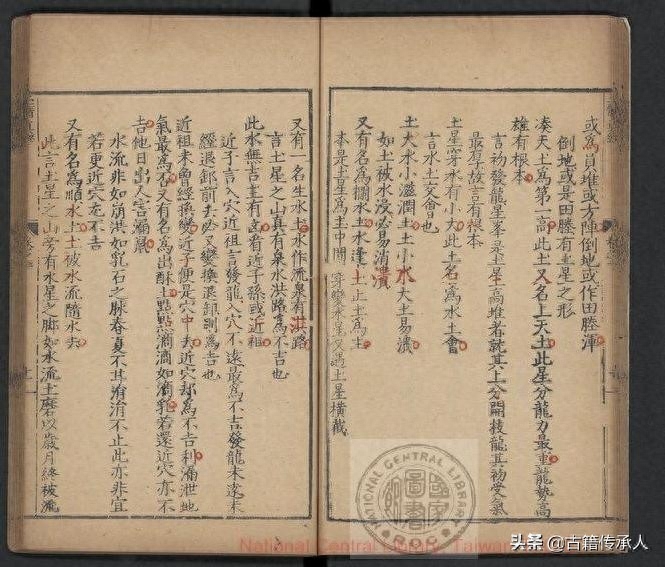 或為員堆或方陣倒地或作田塍渾
倒地或是田塍有土星之形
湊天土為第一高此土又名上天土此星分龍力最重龍勢高
雄有根本
言初發龍星峯是土星高堆者就其上分開枝龍其初受氣
最厚故言有根本
土星穿水有小大此土名為水土會
言水土交會也
土大水小滋潤土土小水大土易潰
如土被水浸必易消潰
又有名為攔水土水逢土止土為主
本是土星為主中間穿變水星又遇土星橫截
又有一名生水土水作流泉有洪路
言土星之山真有泉水洪路為不吉也
此水無吉主有凶看近子孫或近祖
近子言入穴近祖言發龍入穴不遠最為不吉發龍未遠未
經退卸前去必又變換退卸則為吉也
近祖未曾經換變近子便是穴中去近穴却為不吉利漏泄地
氣最為否又有名為出酥土點點滴滴如滴乳若還近穴亦不
吉他日出人害漏風
水流非如崩洪如乳石之脉春夏不其涓涓不止此亦非宜
若更近穴尤不吉
又有名為順水土土被水流隨水去
此言土星之山旁有水星之脚如水流土磨以歲月終被流
National Central Library, Taiwan
NATIONAL CENTRAL LIBRARY
國家圖書館
ROC
头条 @古籍传承人